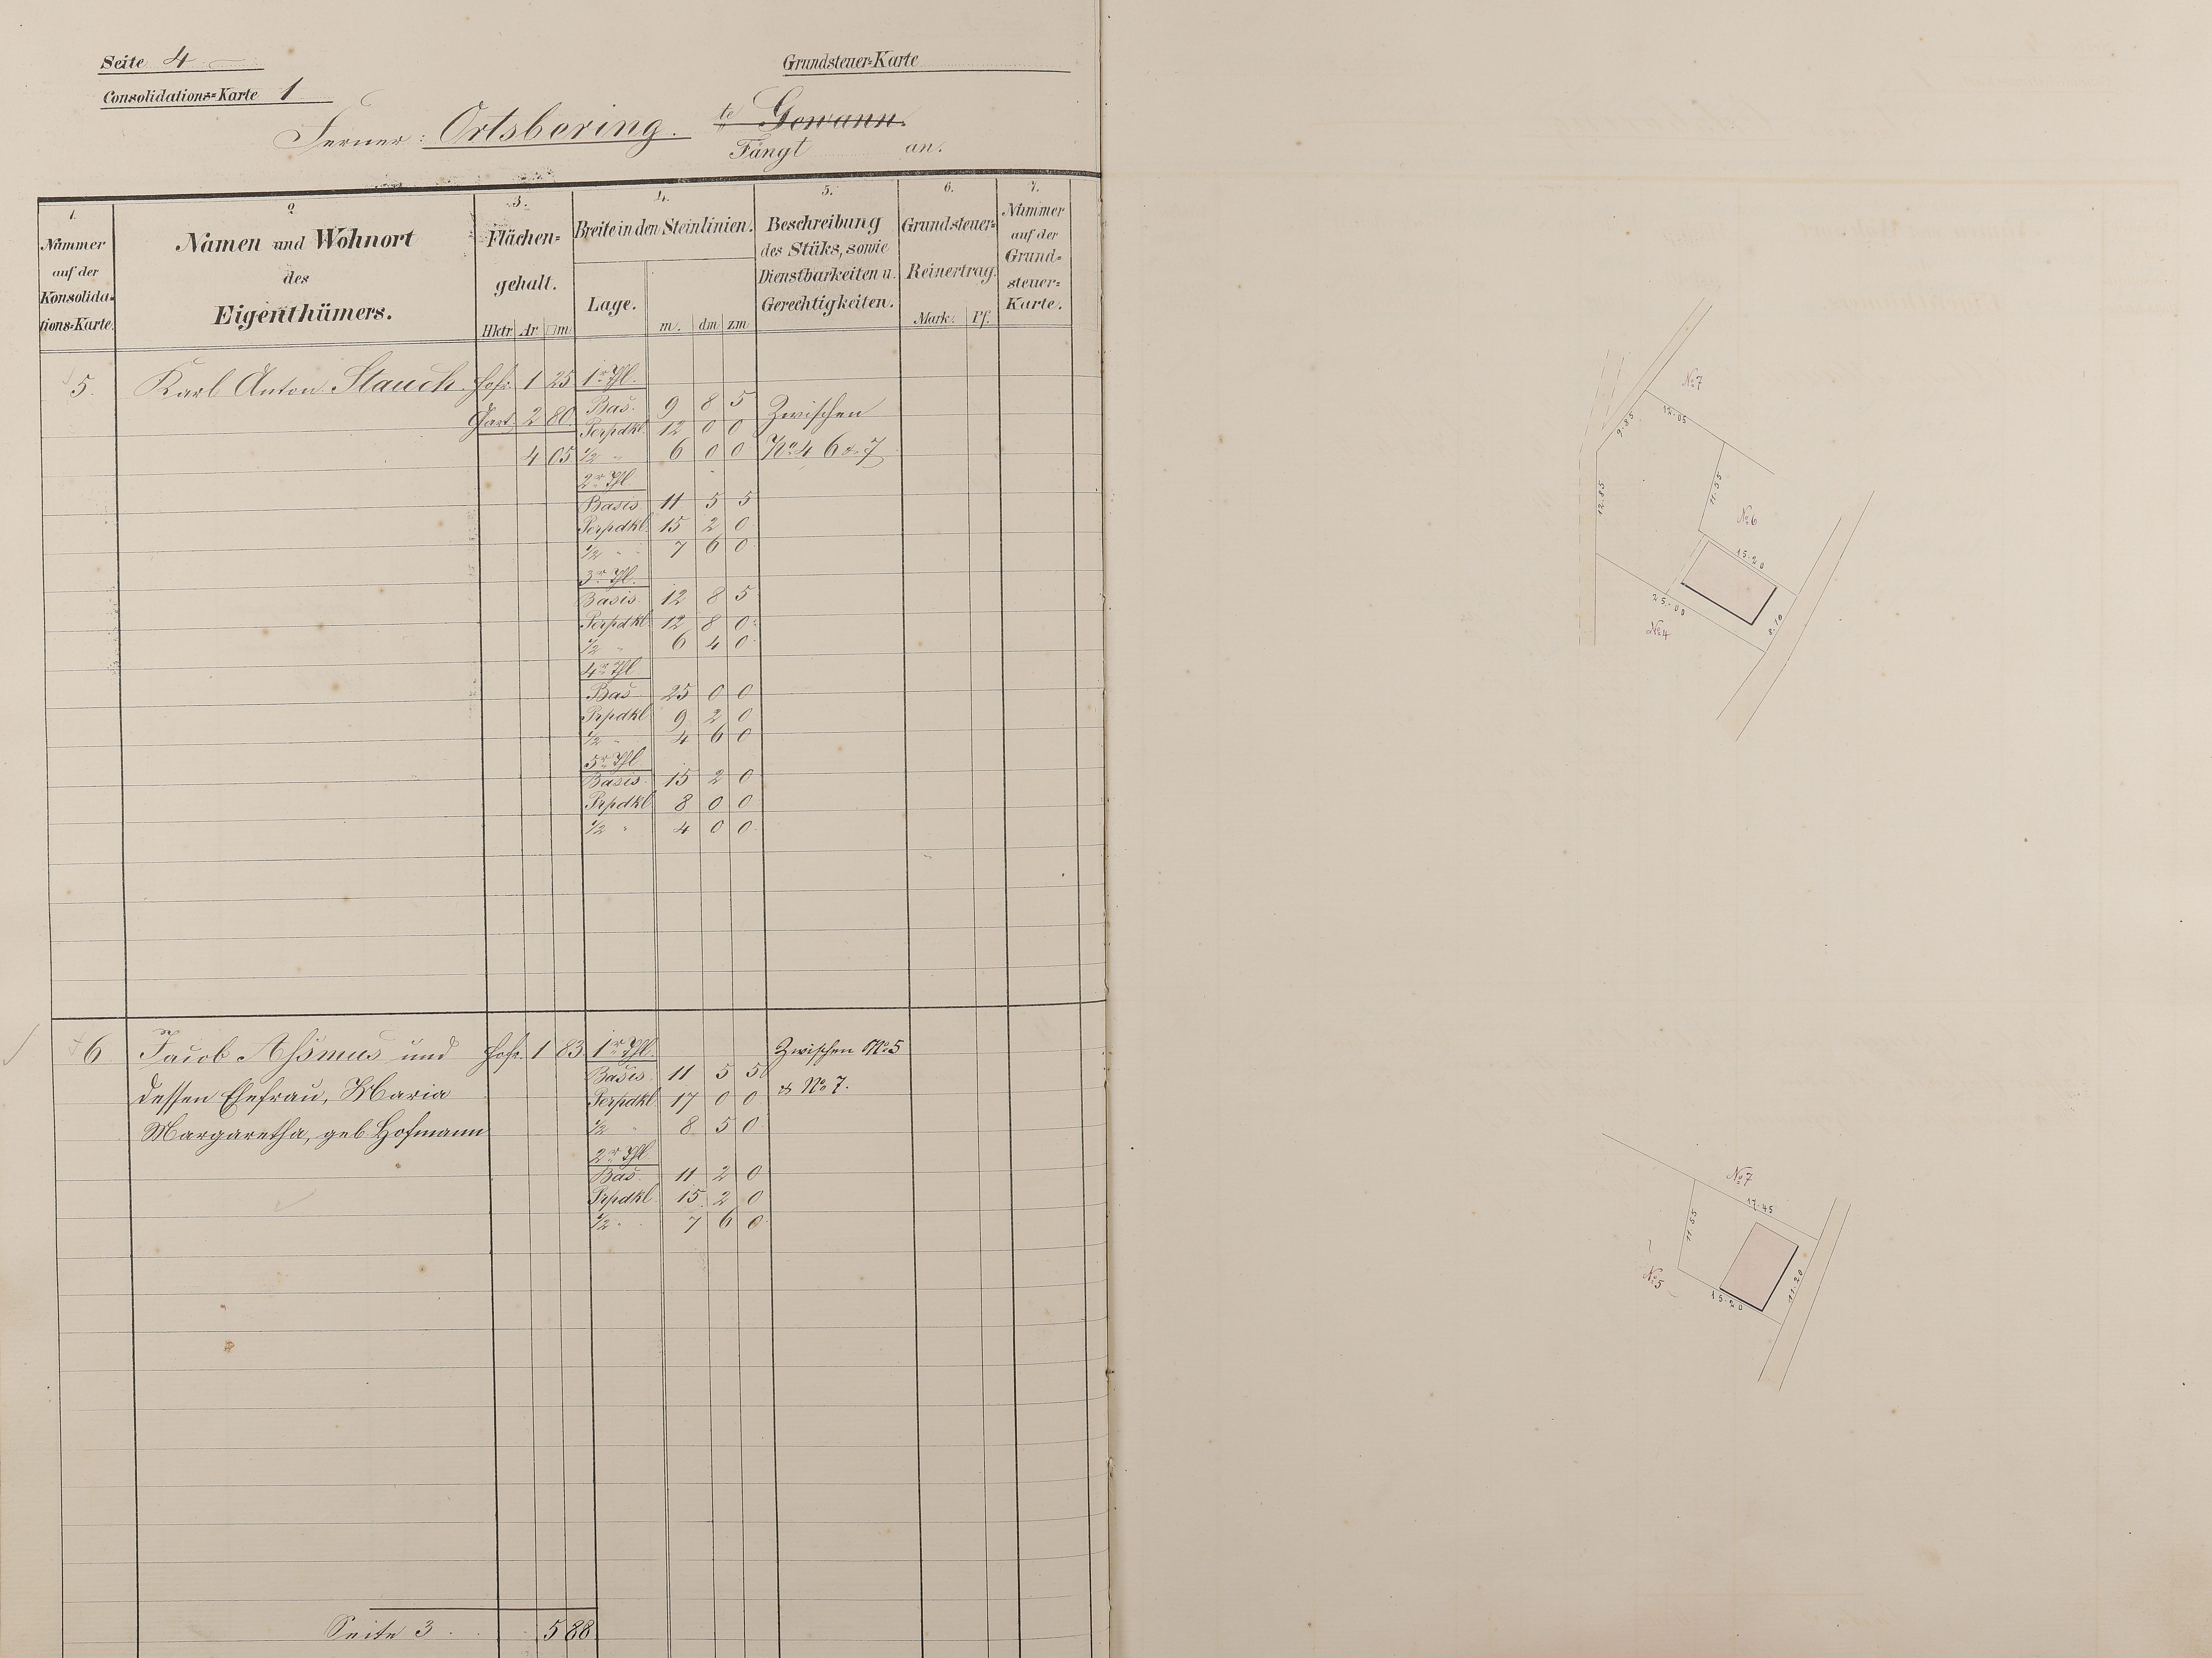 Seite 4
Consolidations=Karte 1
Grundsteuer=Karte
Ferner: Ortsbering. te Gewann.
Fängt an.
1. 2. 3. 4. 5. 6. 7.
Nummer auf der Konsolida=tions=Karte.
Namen und Wohnort
des
Eigenthümers.
Flächen=
gehalt.
Hktr Ar □m
Breite in den Steinlinien.
Lage.
m. dm zm
Beschreibung
des Stüks, sowie
Dienstbarkeiten u.
Gerechtigkeiten.
Grundsteuer=
Reinertrag.
Mark. Pf.
Nummer
auf der
Grund=
steuer=
Karte.
5. Karl Anton Stauch. Hofr. 1 25 1r Thl.
Gart. 2 80 Bas. 9 8 5 Zwischen
Perpdkl. 12 0 0
4 05 1/2 " 6 0 0 No 4 6 & 7
2r Thl
Basis 11 5 5
Perpdkl. 15 2 0
1/2 " 7 6 0
3r Thl.
Basis 12 8 5
Perpdkl 12 8 0
1/2 " 6 4 0
4r Thl
Bas 25 0 0
Prpdkl 9 2 0
1/2 " 4 6 0
5r Thl
Basis 15 2 0
Prpdkl 8 0 0
1/2 " 4 0 0
6 Jacob Assmus und Hofr. 1 83 1r Thl. Zwischen No 5
Basis 11 5 5
dessen Ehefrau, Maria Perpdkl 17 0 0 & No 7.
Margaretha, geb. Hofmann 1/2 " 8 5 0
2r Thl
Bas. 11 2 0
Prpdkl. 15 2 0
1/2 " 7 6 0
Seite 3 5 88
No 7
12.05
9.85
12.85
11.55
No 6
15.20
25.00
No 4
8.10
No 7
17.45
11.55
No 5
15.20
11.20